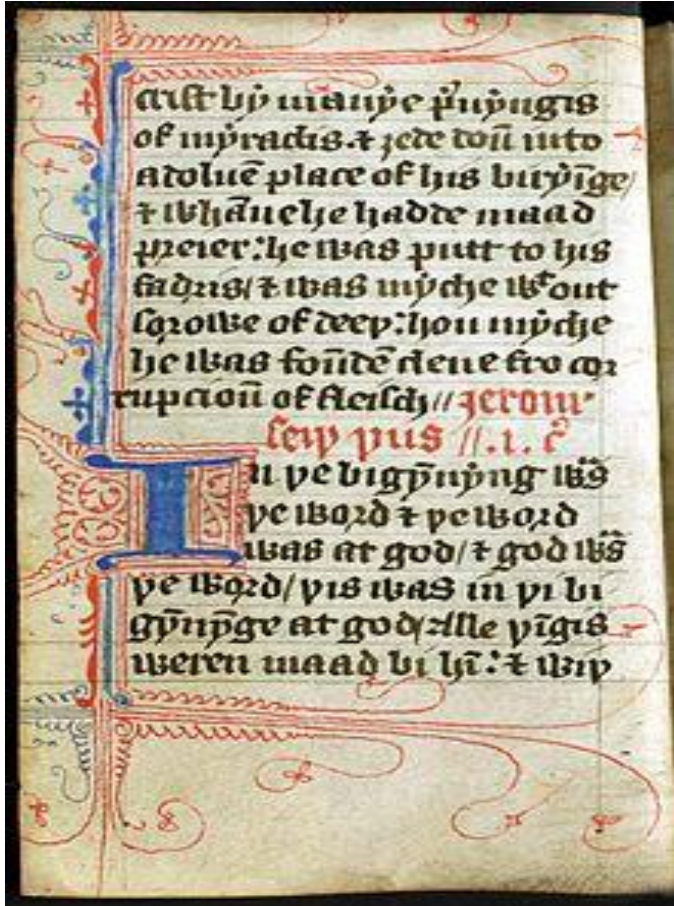 crist bẏ manẏe pͥuẏngis
of mẏraclis. ⁊ ȝede doū into
a doluē place of his birẏīge/
⁊ whāne he hadde maad
preier: he was putt to his
fadris/ ⁊ was mẏche wͭout
sorowe of deeþ: hou mẏche
he was foūdē clene fro cor
rupcioū of fleisch // Jerom
seiþ þus //.i. cͦ
In þe bigẏ̄nẏng wᷓs
þe word ⁊ þe word
was at god/ ⁊ god wᷓs
þe word/ þis was in þi bi
gẏ̄nẏnge at god/ Alle þīgis
weren maad bi hī: ⁊ wiþ